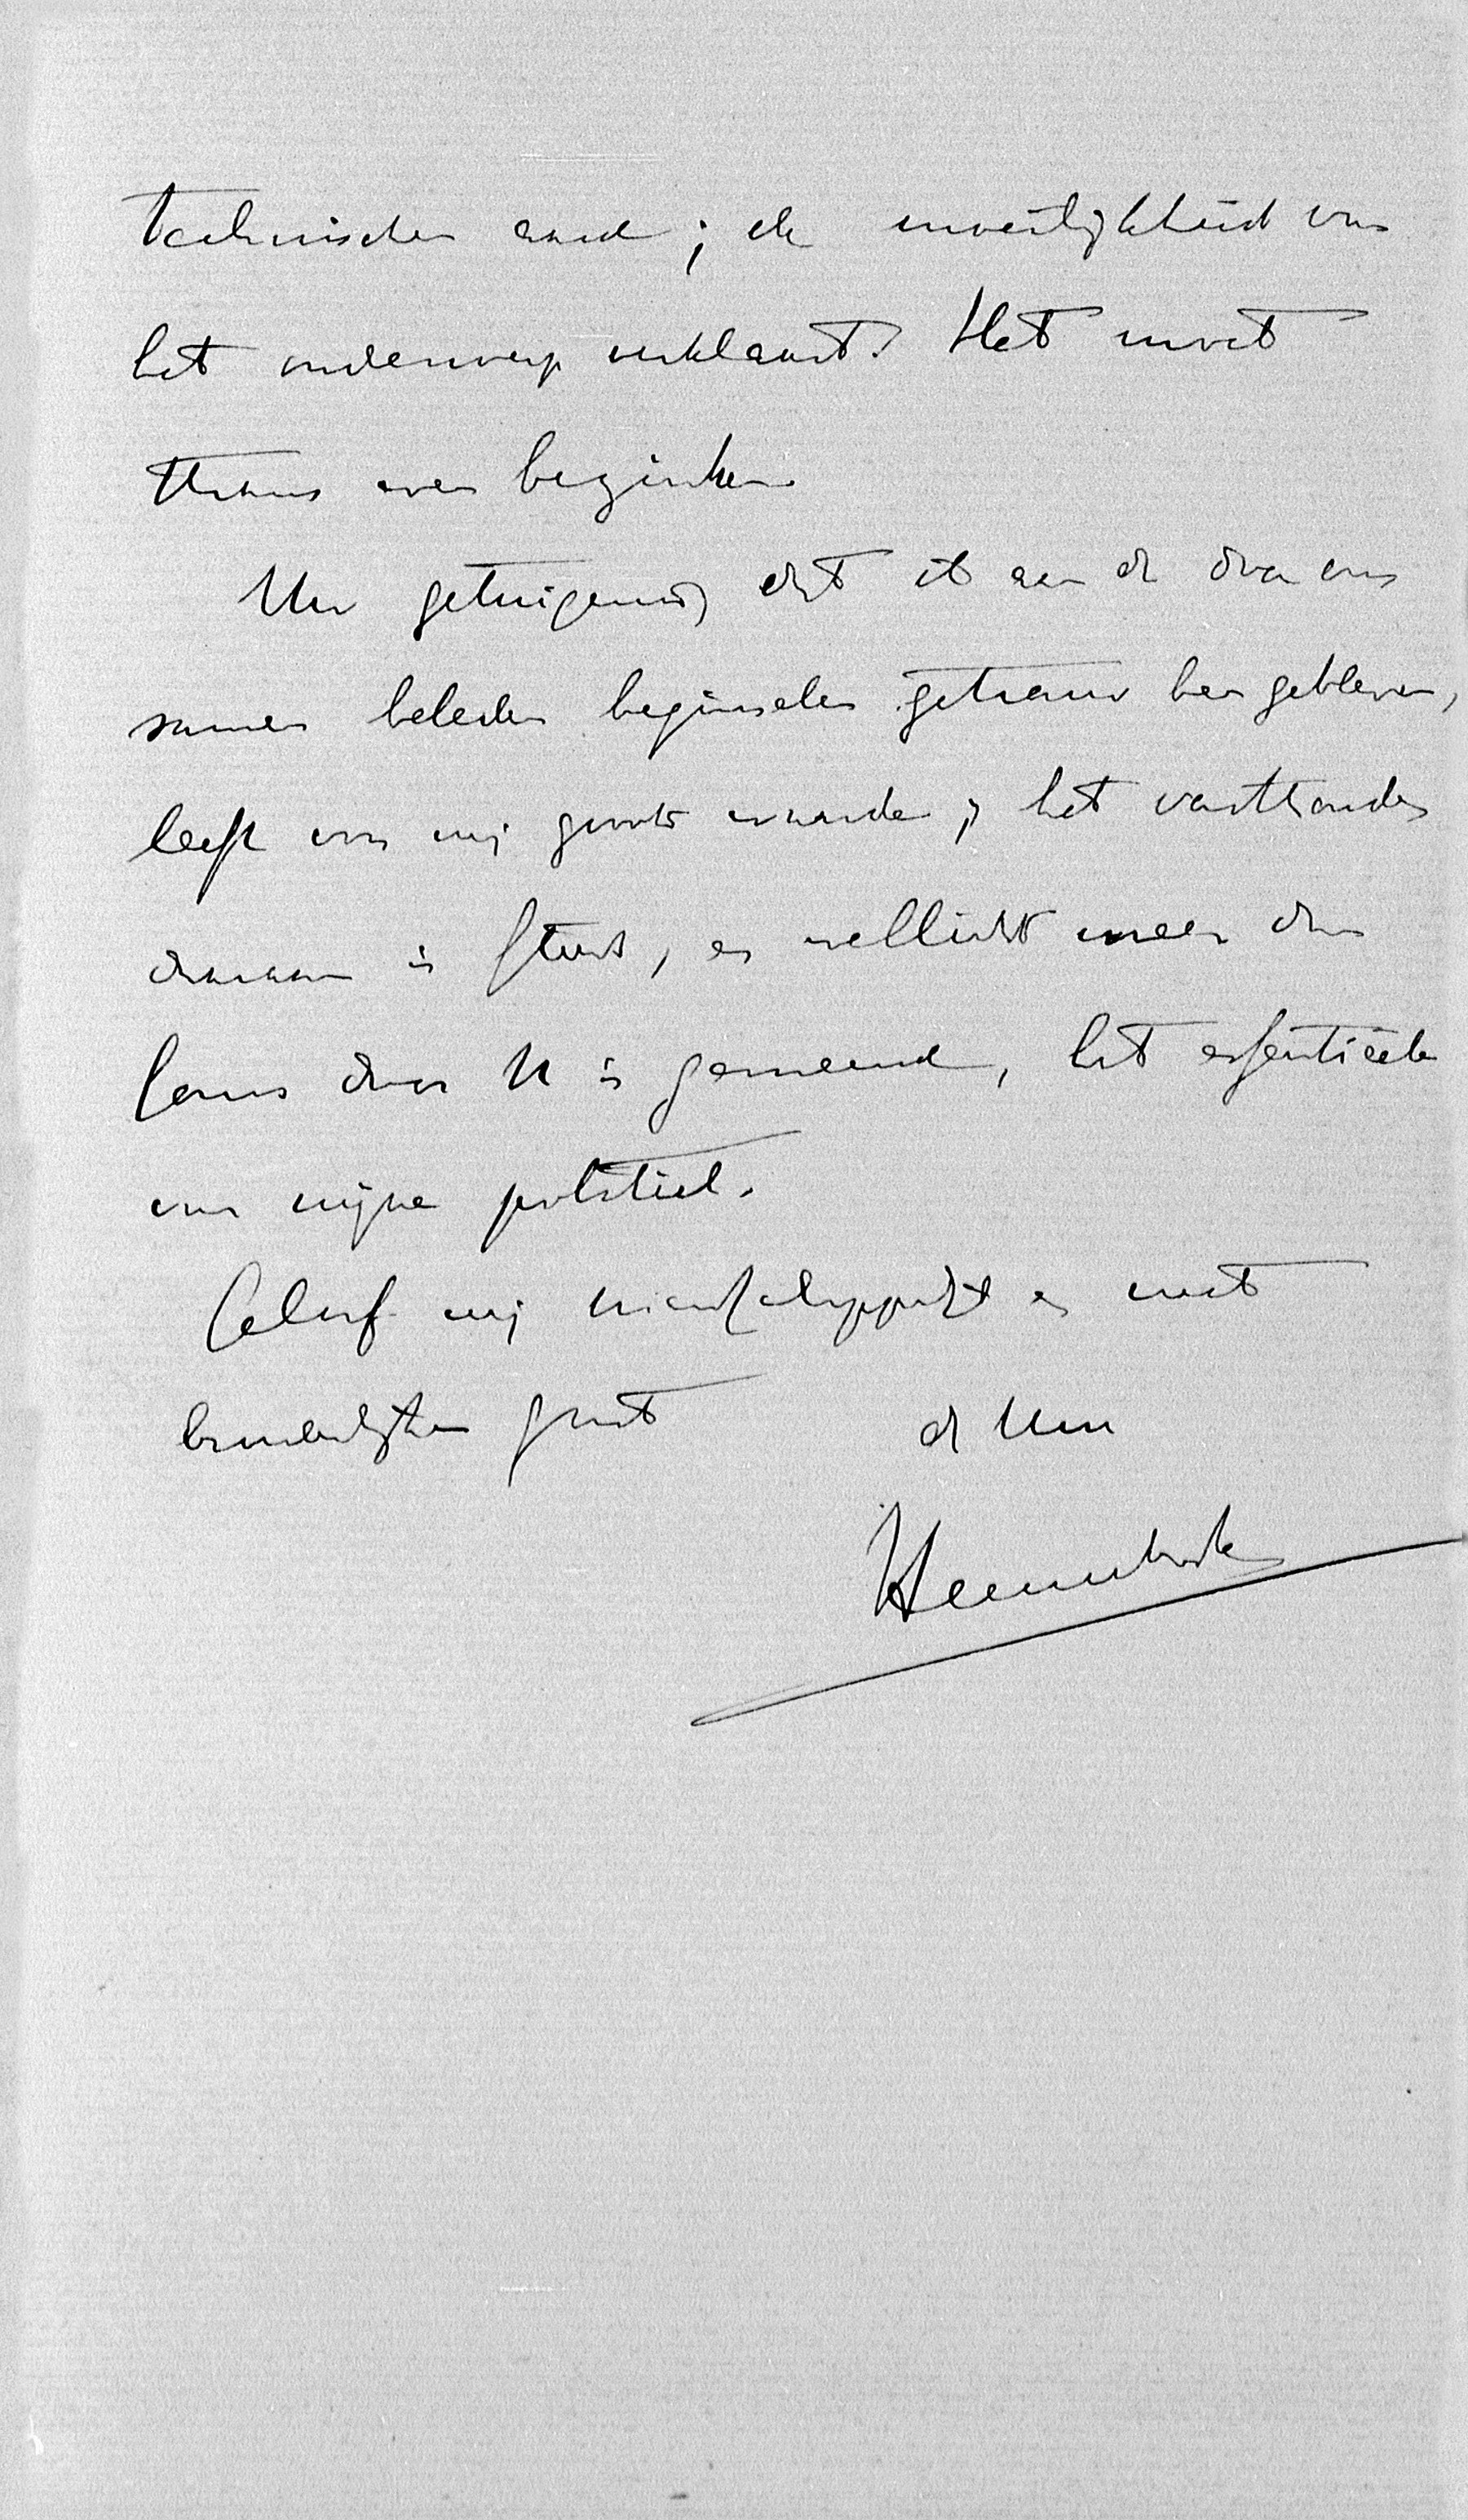 technischen aard; de moeilijkheid van
het onderwerp verklaart. Het moet
thans even bezinken.
Uw getuigenis, dat ik aan de door ons
samen beleden beginselen getrouw ben gebleven,
heeft voor mij groote waarde; het vasthouden
daaraan is steeds, en wellicht meer dan
soms door U is gemeend, het essentieele
van mijne politiek.
Geloof mij vriendschappelijk en met
broederlijken groet de Uwe
Heemskerk